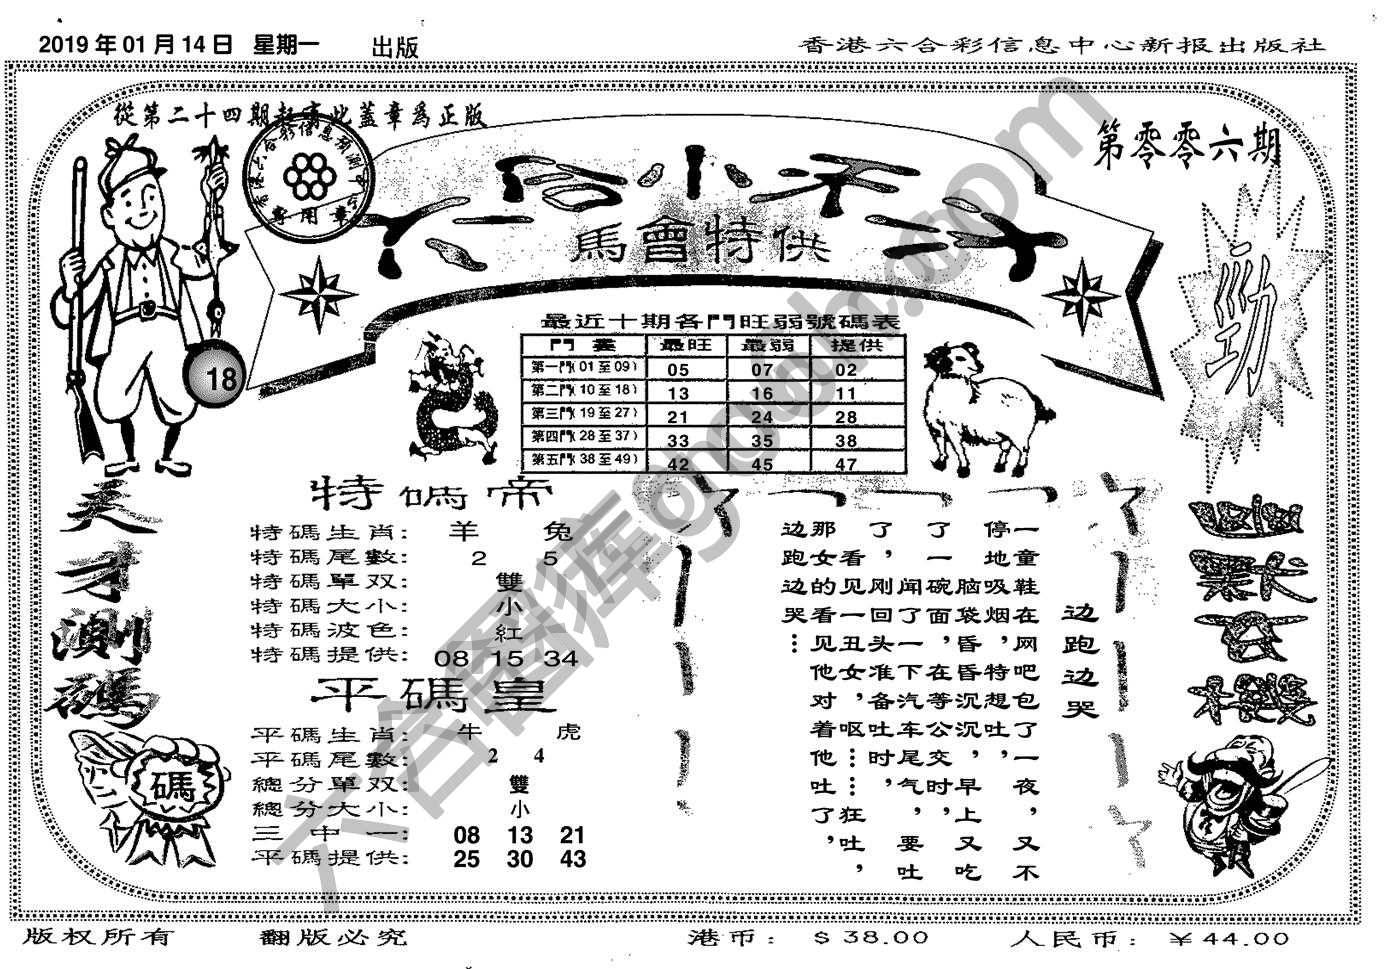 2019年01月14日 星期一 出版
香港六合彩信息中心新报出版社
從第二十四期起寄此蓋章爲正版
第零零六期
馬會特供
勁
18
最近十期各門旺弱號碼表
門 最旺 最弱 提供
第一門(01至09) 05 07 02
第二門(10至18) 13 16 11
第三門(19至27) 21 24 28
第四門(28至37) 33 35 38
第五門(38至49) 42 45 47
天才測碼
碼
特碼帝
特碼生肖: 羊 兔
特碼尾數: 2 5
特碼單双: 雙
特碼大小: 小
特碼波色: 紅
特碼提供: 08 15 34
平碼皇
平碼生肖: 牛 虎
平碼尾數: 2 4
總分單双: 雙
總分大小: 小
三中一: 08 13 21
平碼提供: 25 30 43
边跑边哭
一童鞋在网吧包了一夜,又不
停地吸烟,特想吐,
脑袋昏昏沉沉,早上又吃
了一碗面,在等公交时,
闻了一下汽车尾气,要吐
了,刚回头准备吐时,
看见一丑女,呕……狂吐,
那女的看见他对着他吐了,
边跑边哭…
版权所有 翻版必究 港币: $38.00 人民币: ¥44.00
六合图库